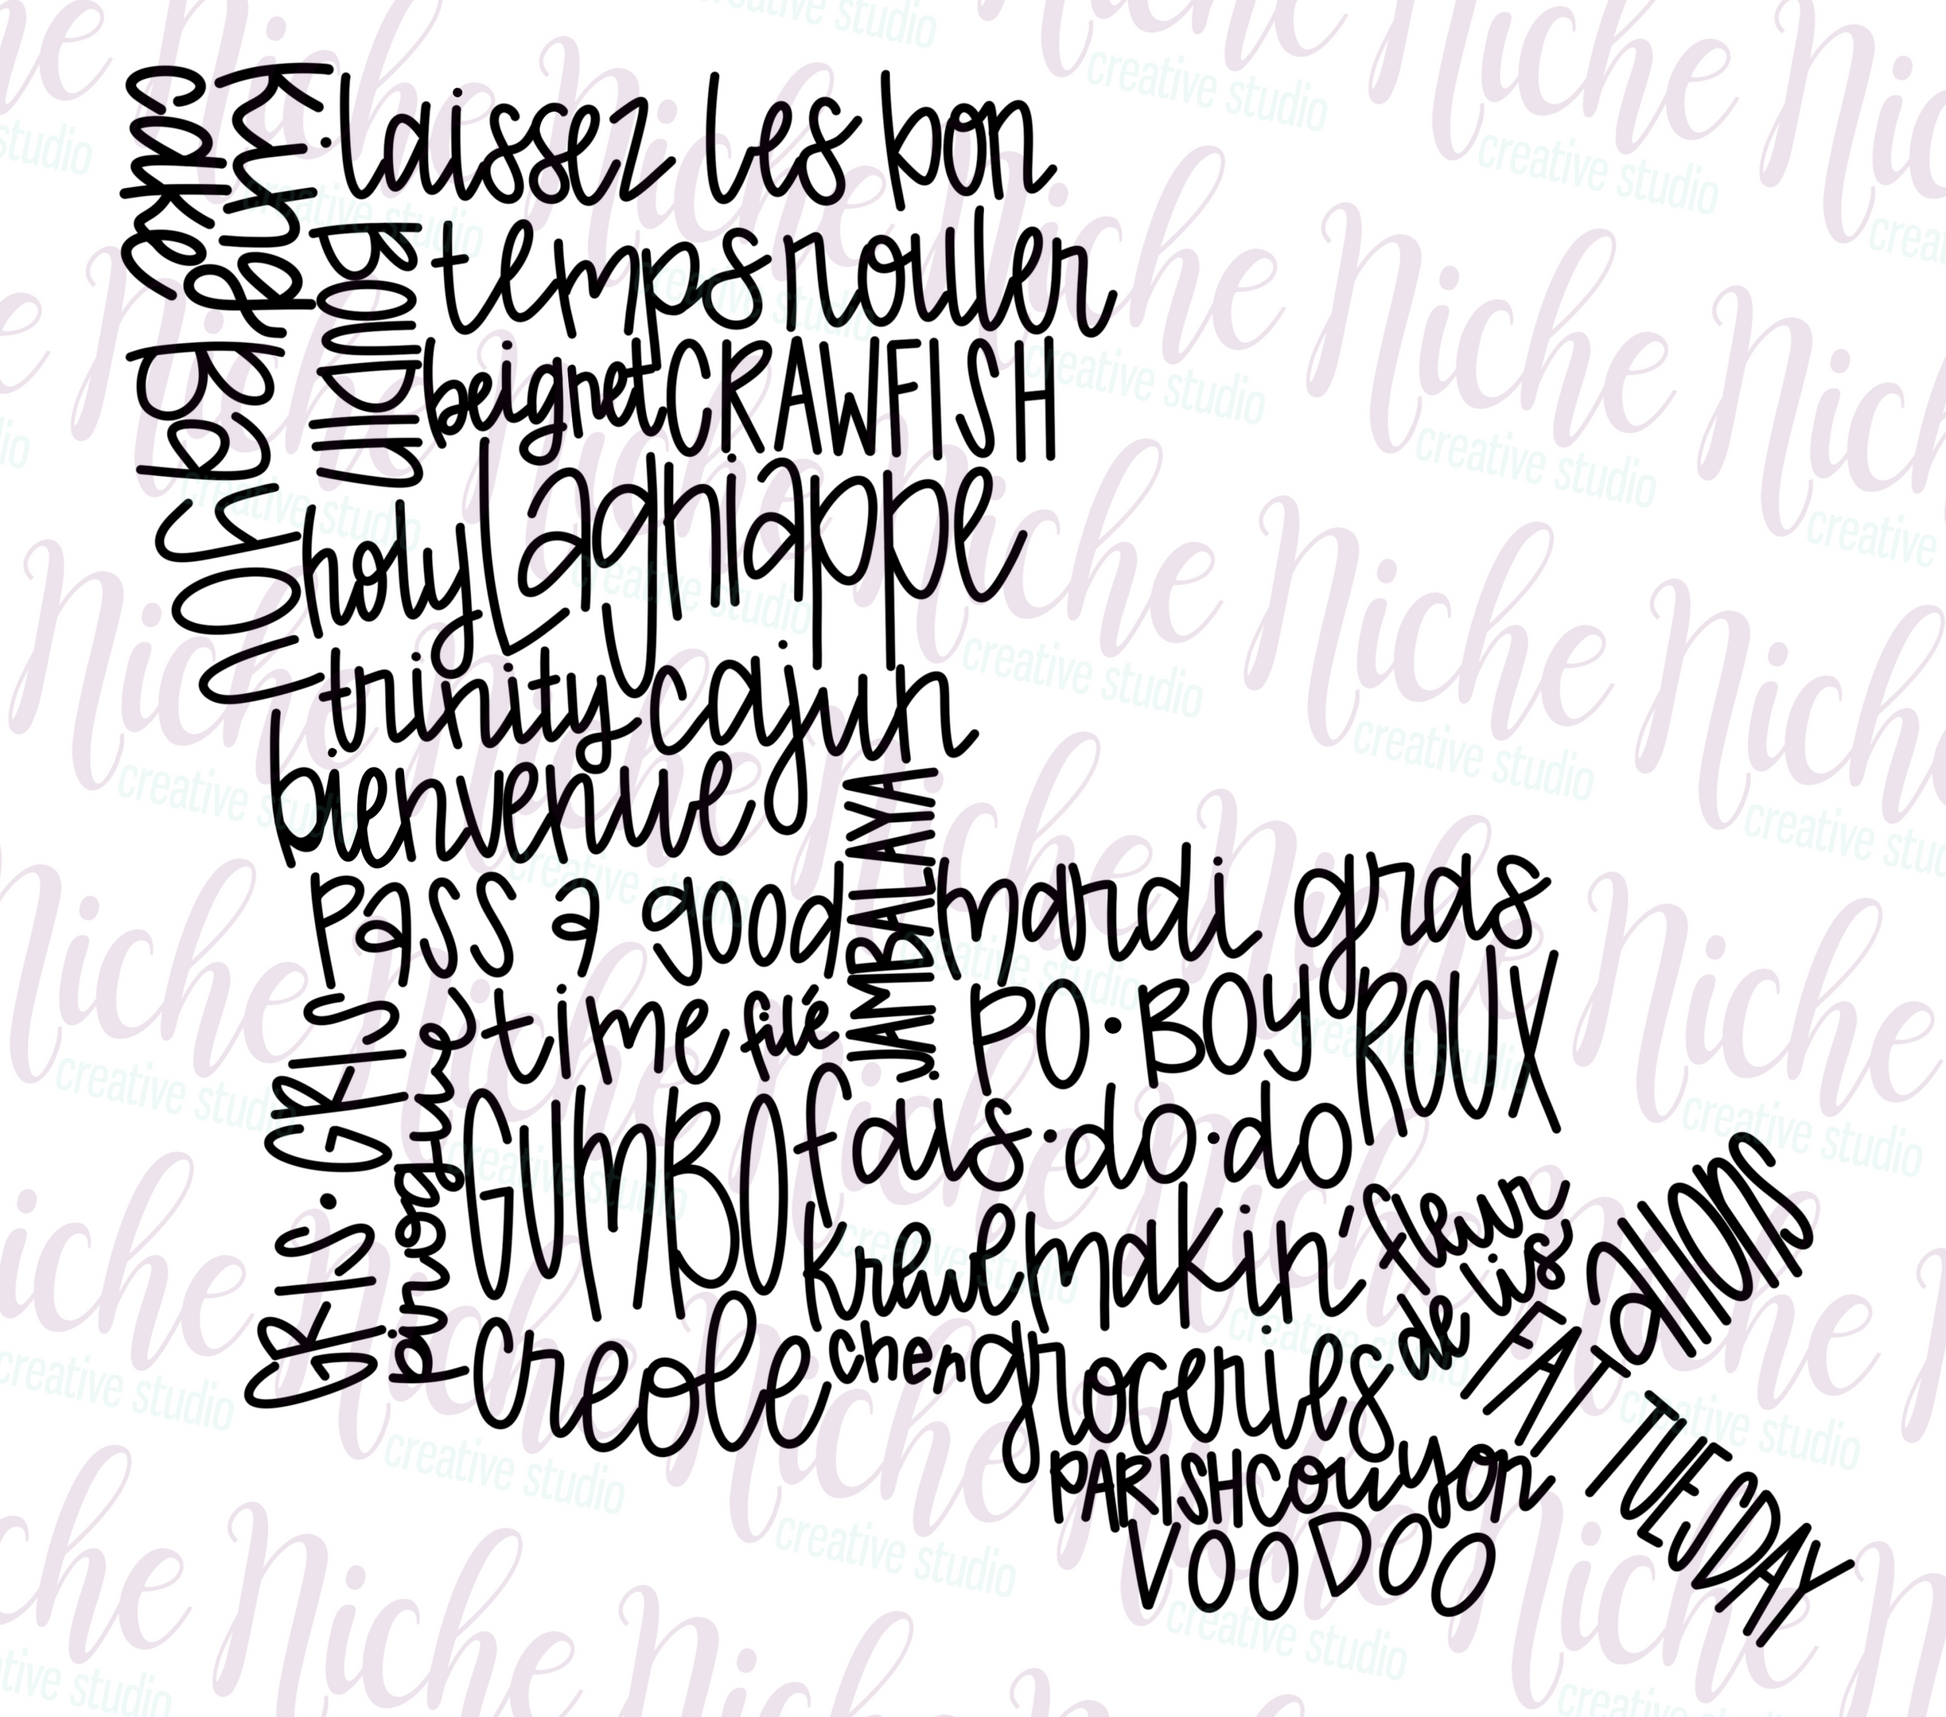 king cake
laissez les bon
temps rouler
BOUDIN
beignet
CRAWFISH
Bayou
holy
Lagniappe
trinity
cajun
bienvenue
JAMBALAYA
pass a good
time
filé
mardi gras
PO·BOY
ROUX
GRIS·GRIS
pirogue
GUMBO
fais·do·do
krewe
makin'
groceries
fleur
de lis
allons
FAT TUESDAY
creole
cher
PARISH
couyon
VOODOO
Niche
creative studio